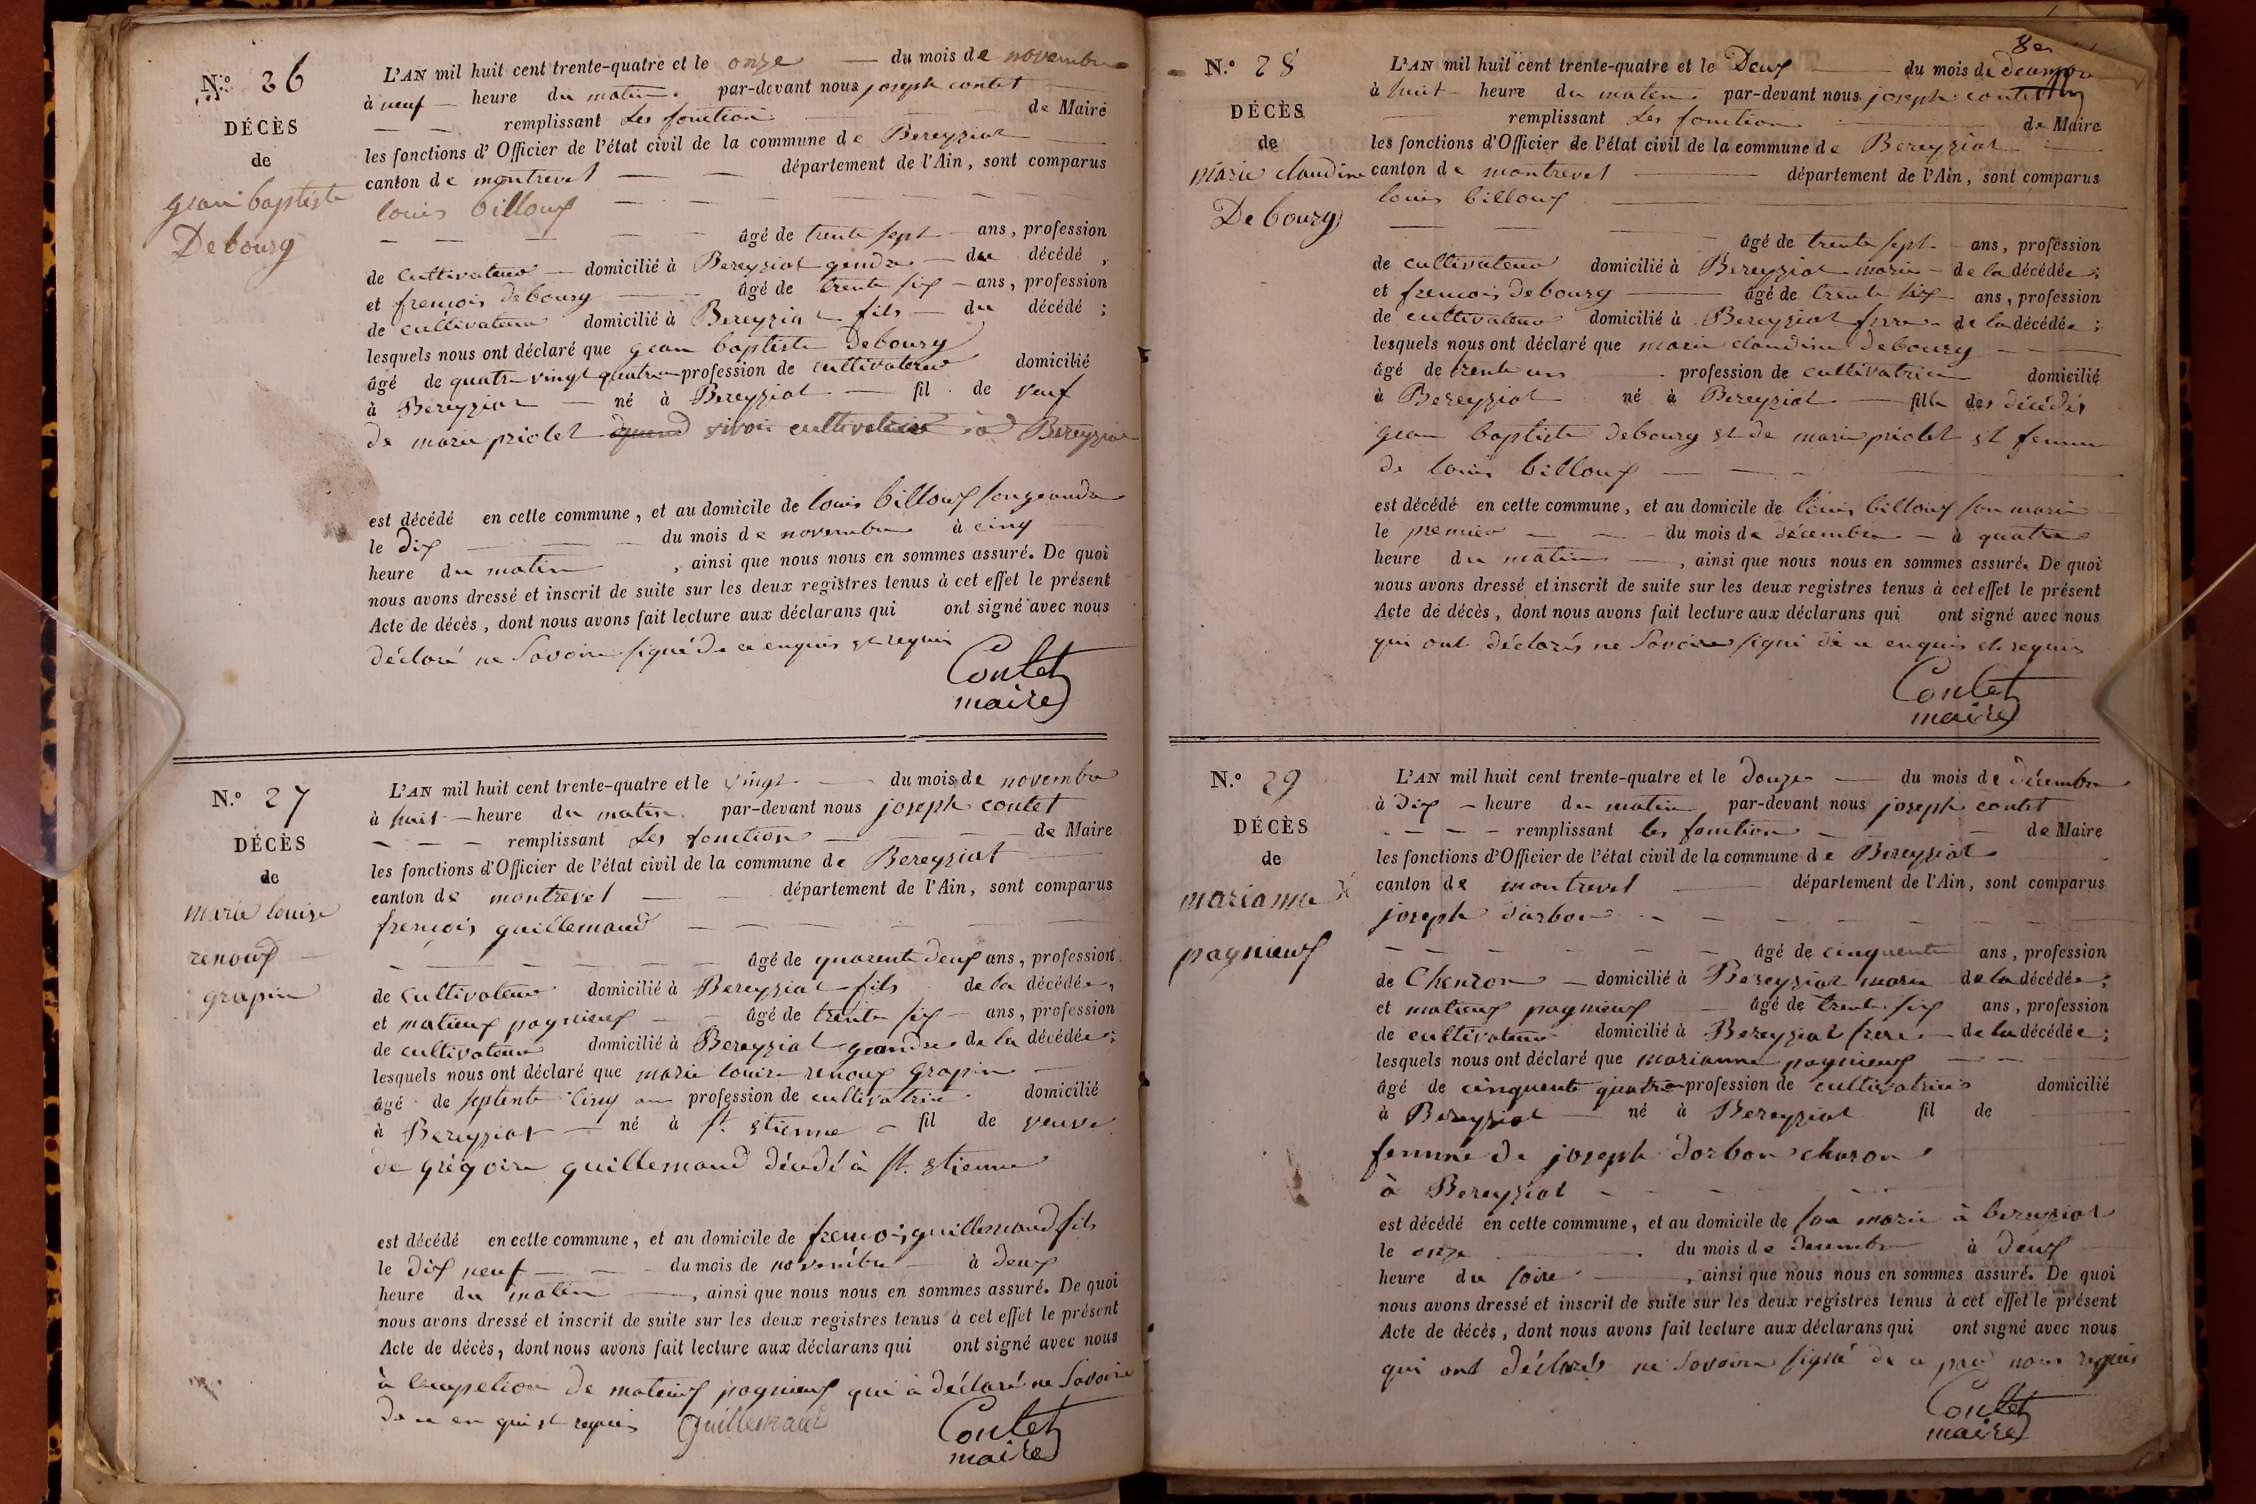 N.º 26
DÉCÈS
de
gean baptiste
Debourg
L'AN mil huit cent trente-quatre et le onze du mois de novembre
à neuf heure du matin. par-devant nous joseph contet
remplissant Les fonction de Maire
les fonctions d'Officier de l'état civil de la commune de Bereyziat
canton de montrevel département de l'Ain, sont comparus
louis billoux
âgé de trente sept ans, profession
de cultivateur domicilié à Bereyziat gendre du décédé,
et francois debourg âgé de trente six ans, profession
de cultivateur domicilié à Bereyziat fils du décédé;
lesquels nous ont déclaré que gean baptiste Debourg
âgé de quatre vingt quatre profession de cultivateur domicilié
à Bereyziat né à Bereyziat fil de veuf
de marie priolet quand vivoit cultivatrice à Bereyziat
est décédé en cette commune, et au domicile de louis billoux son geandre
le dix du mois de novembre à cinq
heure du matin, ainsi que nous nous en sommes assuré. De quoi
nous avons dressé et inscrit de suite sur les deux registres tenus à cet effet le présent
Acte de décès, dont nous avons fait lecture aux déclarans qui ont signé avec nous
déclaré ne Savoire signé de ce enquis et requis
Contet
maire
N.º 27
DÉCÈS
de
marie louise
renoux
grapin
L'AN mil huit cent trente-quatre et le vingt du mois de novembre
à huit heure du matin. par-devant nous joseph contet
remplissant Les fonction de Maire
les fonctions d'Officier de l'état civil de la commune de Bereyziat
canton de montrevel département de l'Ain, sont comparus
francois guillemaud
âgé de quarente deux ans, profession
de cultivateur domicilié à Bereyziat fils de la décédée,
et matieux pagnieux âgé de trente six ans, profession
de cultivateur domicilié à Bereyziat geandre de la décédée;
lesquels nous ont déclaré que marie louise renoux grapin
âgé de septente cinq ans profession de cultivatrice domicilié
à Bereyziat né à st. etienne fil de veuve
de grégoire guillemaud décédé à st. etienne
est décédé en cette commune, et au domicile de francois guillemaud fils
le dix neuf du mois de novembre à deux
heure du matin, ainsi que nous nous en sommes assuré. De quoi
nous avons dressé et inscrit de suite sur les deux registres tenus à cet effet le présent
Acte de décès, dont nous avons fait lecture aux déclarans qui ont signé avec nous
à de matieux pagnieux qui à déclaré ne Savoire
de ce en qui et requis Guillemaud
Contet
maire
N.º 28
DÉCÈS
de
marie claudine
Debourg
L'AN mil huit cent trente-quatre et le Deux du mois de
à huit heure du matin. par-devant nous joseph contet
remplissant Les fonction de Maire
les fonctions d'Officier de l'état civil de la commune de Bereyziat
canton de montrevel département de l'Ain, sont comparus
louis billoux
âgé de trente sept ans, profession
de cultivateur domicilié à Bereyziat marie de la décédée;
et francois debourg âgé de trente six ans, profession
de cultivateur domicilié à Bereyziat frere de la décédée;
lesquels nous ont déclaré que marie claudine debourg
âgé de trente un profession de cultivatrice domicilié
à Bereyziat né à Bereyziat fille des décédés
gean baptiste debourg et de marie priolet et femme
de louis billoux
est décédé en cette commune, et au domicile de louis billoux son marie
le premier du mois de décembre à quatre
heure du matin, ainsi que nous nous en sommes assuré. De quoi
nous avons dressé et inscrit de suite sur les deux registres tenus à cet effet le présent
Acte de décès, dont nous avons fait lecture aux déclarans qui ont signé avec nous
qui ont déclarés ne Savoire signé de ce enquis et requis
Contet
maire
N.º 29
DÉCÈS
de
marianne
pagnieux
L'AN mil huit cent trente-quatre et le douze du mois de décembre
à dix heure du matin par-devant nous joseph contet
remplissant les fonction de Maire
les fonctions d'Officier de l'état civil de la commune de Bereyziat
canton de montrevel département de l'Ain, sont comparus
joseph darbon
âgé de cinquente ans, profession
de Charon domicilié à Bereyziat marie de la décédée;
et matieux pagnieux âgé de trente six ans, profession
de cultivateur domicilié à Bereyziat frere de la décédée;
lesquels nous ont déclaré que marianne pagnieux
âgé de cinquente quatre profession de cultivatrice domicilié
à Bereyziat né à Bereyziat fil de
femme de joseph darbon charon
à Bereyziat
est décédé en cette commune, et au domicile de son marie à bereyziat
le onze du mois de decembre à deux
heure du soire, ainsi que nous nous en sommes assuré. De quoi
nous avons dressé et inscrit de suite sur les deux registres tenus à cet effet le présent
Acte de décès, dont nous avons fait lecture aux déclarans qui ont signé avec nous
qui ont déclarés ne Savoire signé de ce par nous requis
Contet
maire